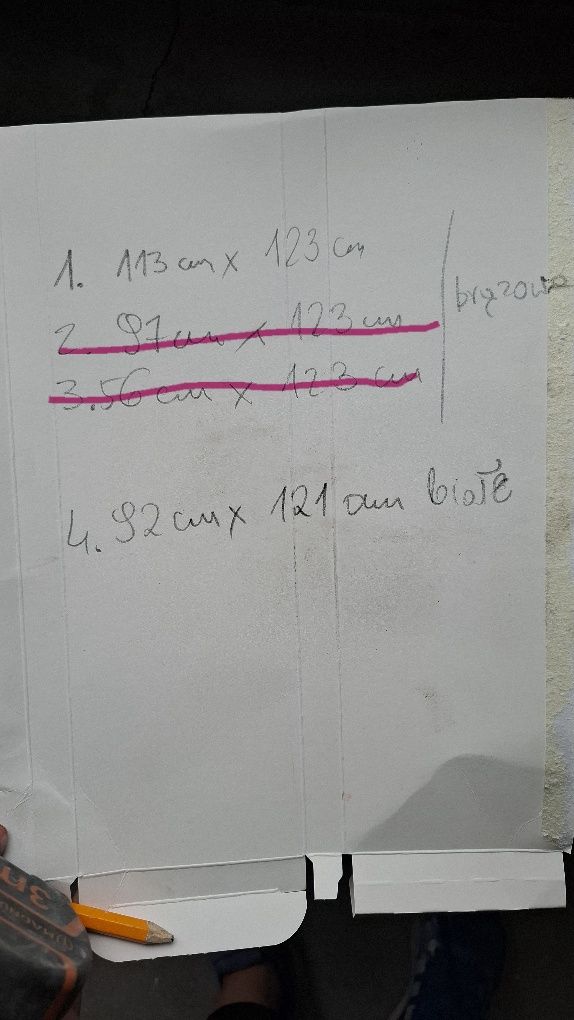 1. 113 cm x 123 cm
2. 97 cm x 123 cm
3. 56 cm x 123 cm
brązowe
4. 92 cm x 121 cm białe
3m
MAGNU